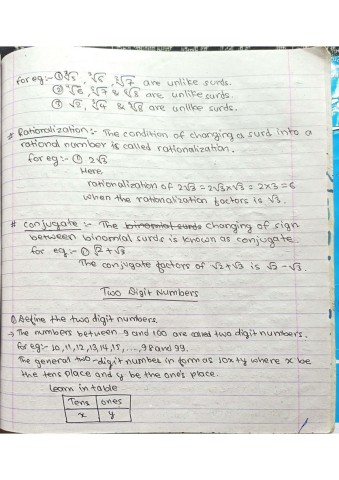 for eg:- ① ∛5, ∜6, ∛7 are unlike surds.
② ∜6, ∜7 & ∜8 are unlike surds.
③ √2, ∛4 & ∜8 are unlike surds.
# Rationalization:- The condition of changing a surd into a
rational number is called rationalization.
for eg:- ① 2√3
Here
rationalization of 2√3 = 2√3×√3 = 2×3 = 6
when the rationalization factors is √3.
# conjugate :- The binomial surds changing of sign
between binomial surds is known as conjugate
for eg:- ① √2+√3
The conjugate factors of √2+√3 is √2-√3.
Two Digit Numbers
① Define the two digit numbers.
→ The numbers between 9 and 100 are called two digit numbers.
For eg:- 10,11,12,13,14,15, ...., 98 and 99.
The general two-digit number in form as 10x+y where x be
the tens place and y be the one's place.
Learn in table
Tens ones
x y